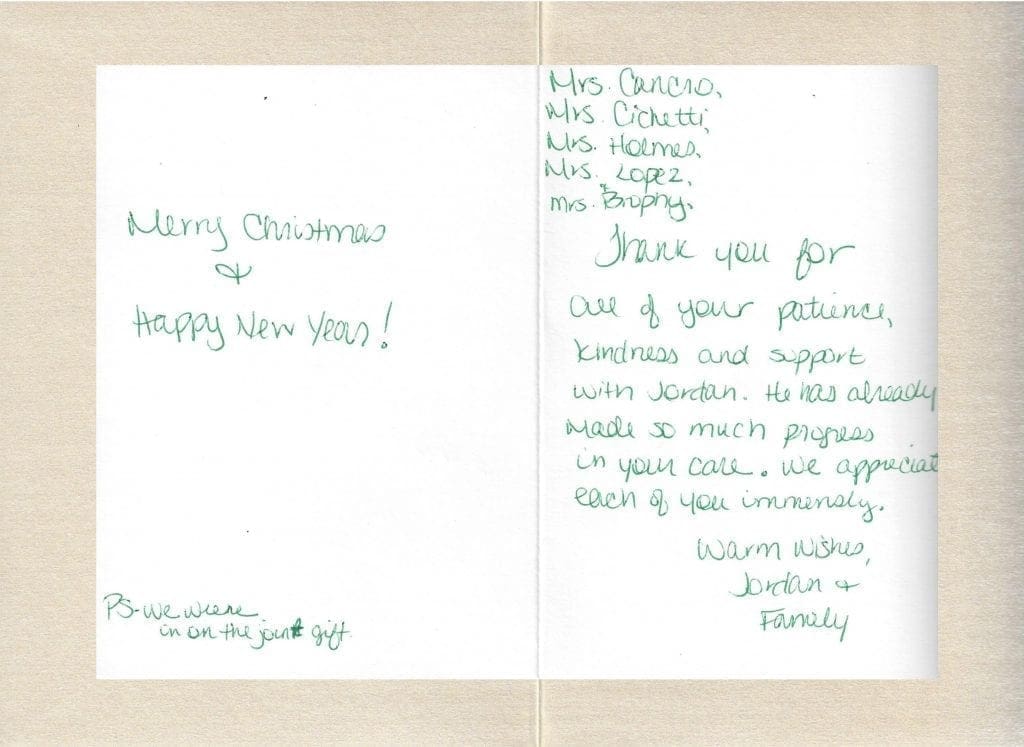 Merry Christmas
&
Happy New Year!
PS-we were
in on the joint gift
Mrs. Cancro,
Mrs. Cichetti,
Mrs. Holmes,
Mrs. Lopez,
& mrs. Brophy,
Thank you for
all of your patience,
kindness and support
with Jordan. He has already
made so much progress
in your care. We appreciat
each of you immensly.
Warm Wishes,
Jordan &
Family